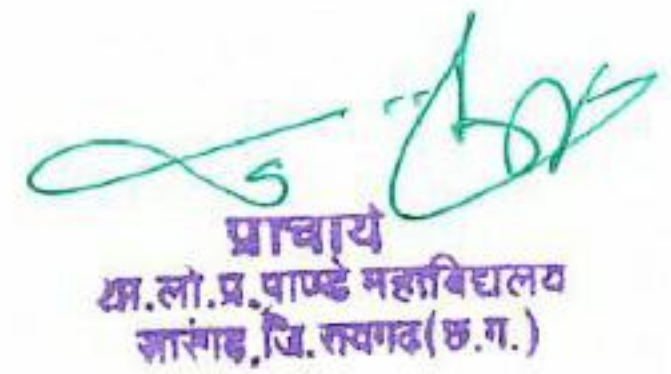 प्राचार्य
शा.लो.प्र.पाण्डे महाविद्यालय
सारंगढ़,जि.रायगढ(छ.ग.)